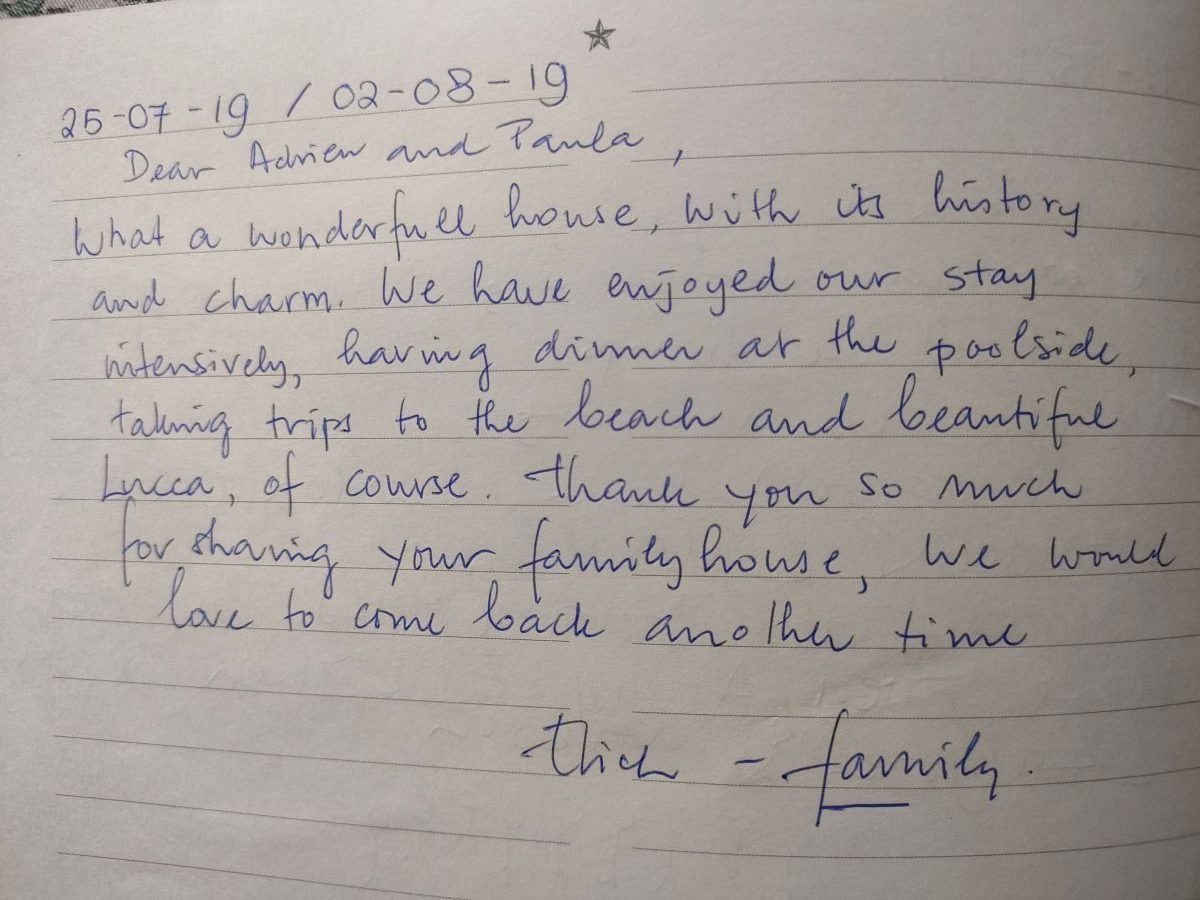 25-07-19 / 02-08-19
Dear Adrien and Paula,
What a wonderfull house, with its history
and charm. We have enjoyed our stay
intensively, having dinner at the poolside,
taking trips to the beach and beautiful
Lucca, of course. Thank you so much
for sharing your family house, we would
love to come back another time
- family.